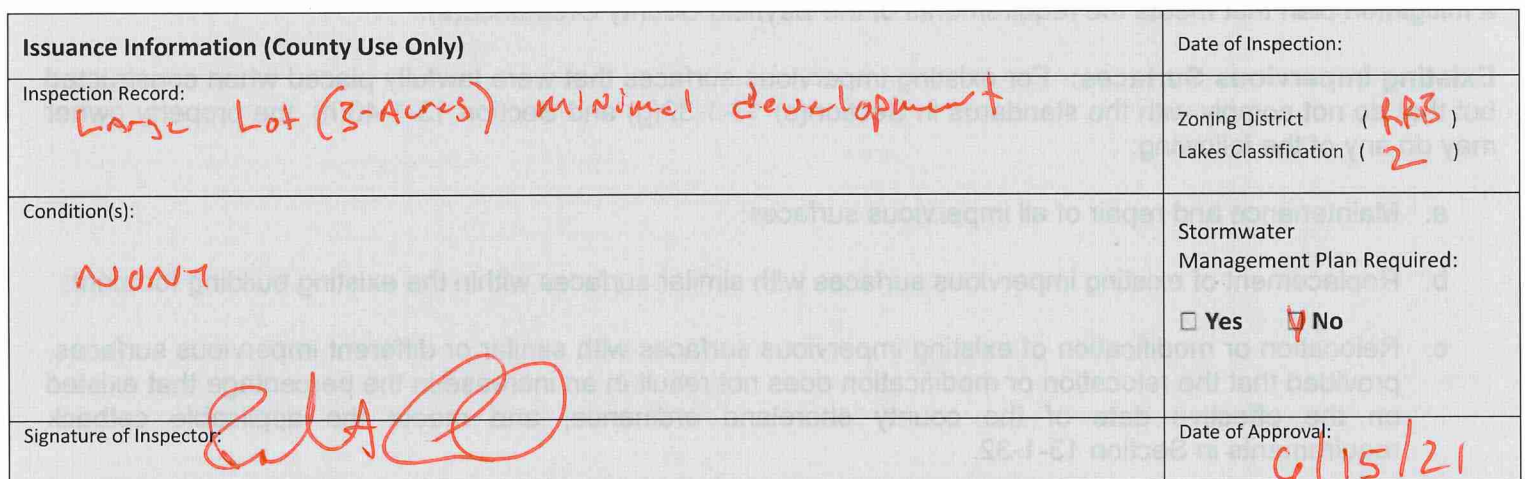 Issuance Information (County Use Only)
Date of Inspection:
Inspection Record:
Large Lot (3 Acres) minimal development
Zoning District ( RRB )
Lakes Classification ( 2 )
Condition(s):
NONE
Stormwater
Management Plan Required:
☐ Yes ☑ No
Signature of Inspector:
Date of Approval:
6/15/21